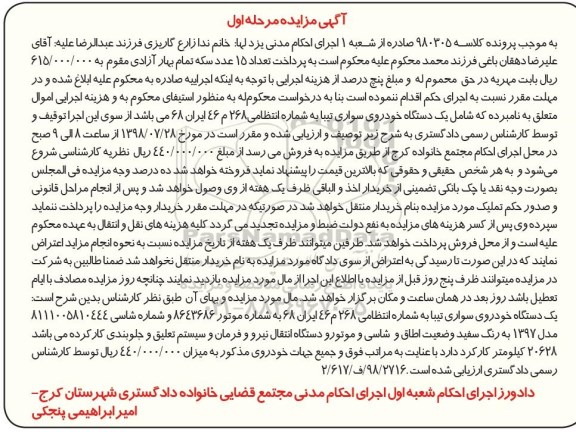 آگهی مزایده مرحله اول
به موجب پرونده کلاسه ۹۸۰۳۰۵ صادره از شعبه ۱ اجرای احکام مدنی یزد لها: خانم ندا زارع گاریزی فرزند عبدالرضا علیه: آقای
علیرضا دهقان باغی فرزند محمد محکوم علیه محکوم است به پرداخت تعداد ۱۵ عدد سکه تمام بهار آزادی مقوم به ۶۱۵/۰۰۰/۰۰۰
ریال بابت مهریه در حق محموم له و مبلغ پنچ درصد از هزینه اجرایی با توجه به اینکه اجراییه صادره به محکوم علیه ابلاغ شده و در
مهلت مقرر نسبت به اجرای حکم اقدام ننموده است بنا به درخواست محکوم‌له به منظور استیفای محکوم به و هزینه اجرایی اموال
متعلق به نامبرده که شامل یک دستگاه خودروی سواری تیبا به شماره انتظامی ۲۶۸ م ۴۶ ایران ۶۸ می باشد از سوی این اجرا توقیف و
توسط کارشناس رسمی دادگستری به شرح زیر توصیف و ارزیابی شده و مقرر است در مورخ ۱۳۹۸/۰۷/۲۸ از ساعت ۸ الی ۹ صبح
در محل اجرای احکام مجتمع خانواده کرج از طریق مزایده به فروش می رسد از مبلغ ۴۴۰/۰۰۰/۰۰۰ ریال نظریه کارشناسی شروع
می‌شود و به هر شخص حقیقی و حقوقی که بالاترین قیمت را پیشنهاد نماید فروخته خواهد شد ده درصد وجه مزایده فی المجلس
بصورت وجه نقد یا چک بانکی تضمینی از خریدار اخذ و الباقی ظرف یک هفته از وی وصول خواهد شد و پس از انجام مراحل قانونی
و صدور حکم تملیک مورد مزایده بنام خریدار منتقل خواهد شد در صورتیکه در مهلت مقرر خریدار وجه مزایده را پرداخت ننماید
سپرده وی پس از کسر هزینه های مزایده به نفع دولت ضبط و مزایده تجدید می گردد کلیه هزینه های نقل و انتقال به عهده محکوم
علیه است و از محل فروش پرداخت خواهد شد. طرفین میتوانند ظرف یک هفته از تاریخ مزایده نسبت به نحوه انجام مزاید اعتراض
نمایند که در این صورت تا رسیدگی به اعتراض از سوی دادگاه مورد مزایده به نام خریدار منتقل نخواهد شد ضمنا طالبین به شرکت
در مزایده میتوانند ظرف پنج روز قبل از مزایده با اطلاع این اجرا از مال مورد مزایده بازدید نمایند. چنانچه روز مزایده مصادف با ایام
تعطیل باشد روز بعد در همان ساعت و مکان برگزار خواهد شد. مال مورد مزایده و بهای آن طبق نظر کارشناس بدین شرح است:
یک دستگاه خودروی سواری تیبا به شماره انتظامی ۲۶۸ م ۴۶ ایران ۶۸ به شماره موتور ۸۶۴۳۶۸۶ و شماره شاسی ۸۱۱۱۰۰۵۸۱۰۴۴۴
مدل ۱۳۹۷ به رنگ سفید وضعیت اطاق و شاسی و موتور و دستگاه انتقال نیرو و فرمان و سیستم تعلیق و جلوبندی کارکرده می باشد
۲۰۶۲۸ کیلومتر کارکرد دارد با عنایت به مراتب فوق و جمیع جهات خودروی مذکور به میزان ۴۴۰/۰۰۰/۰۰۰ ریال توسط کارشناس
رسمی دادگستری ارزیابی شده است. ۹۸/۲۷۱۶/ف/۲/۶۱۷
دادورز اجرای احکام شعبه اول اجرای احکام مدنی مجتمع قضایی خانواده دادگستری شهرستان کرج-
امیر ابراهیمی پنجکی